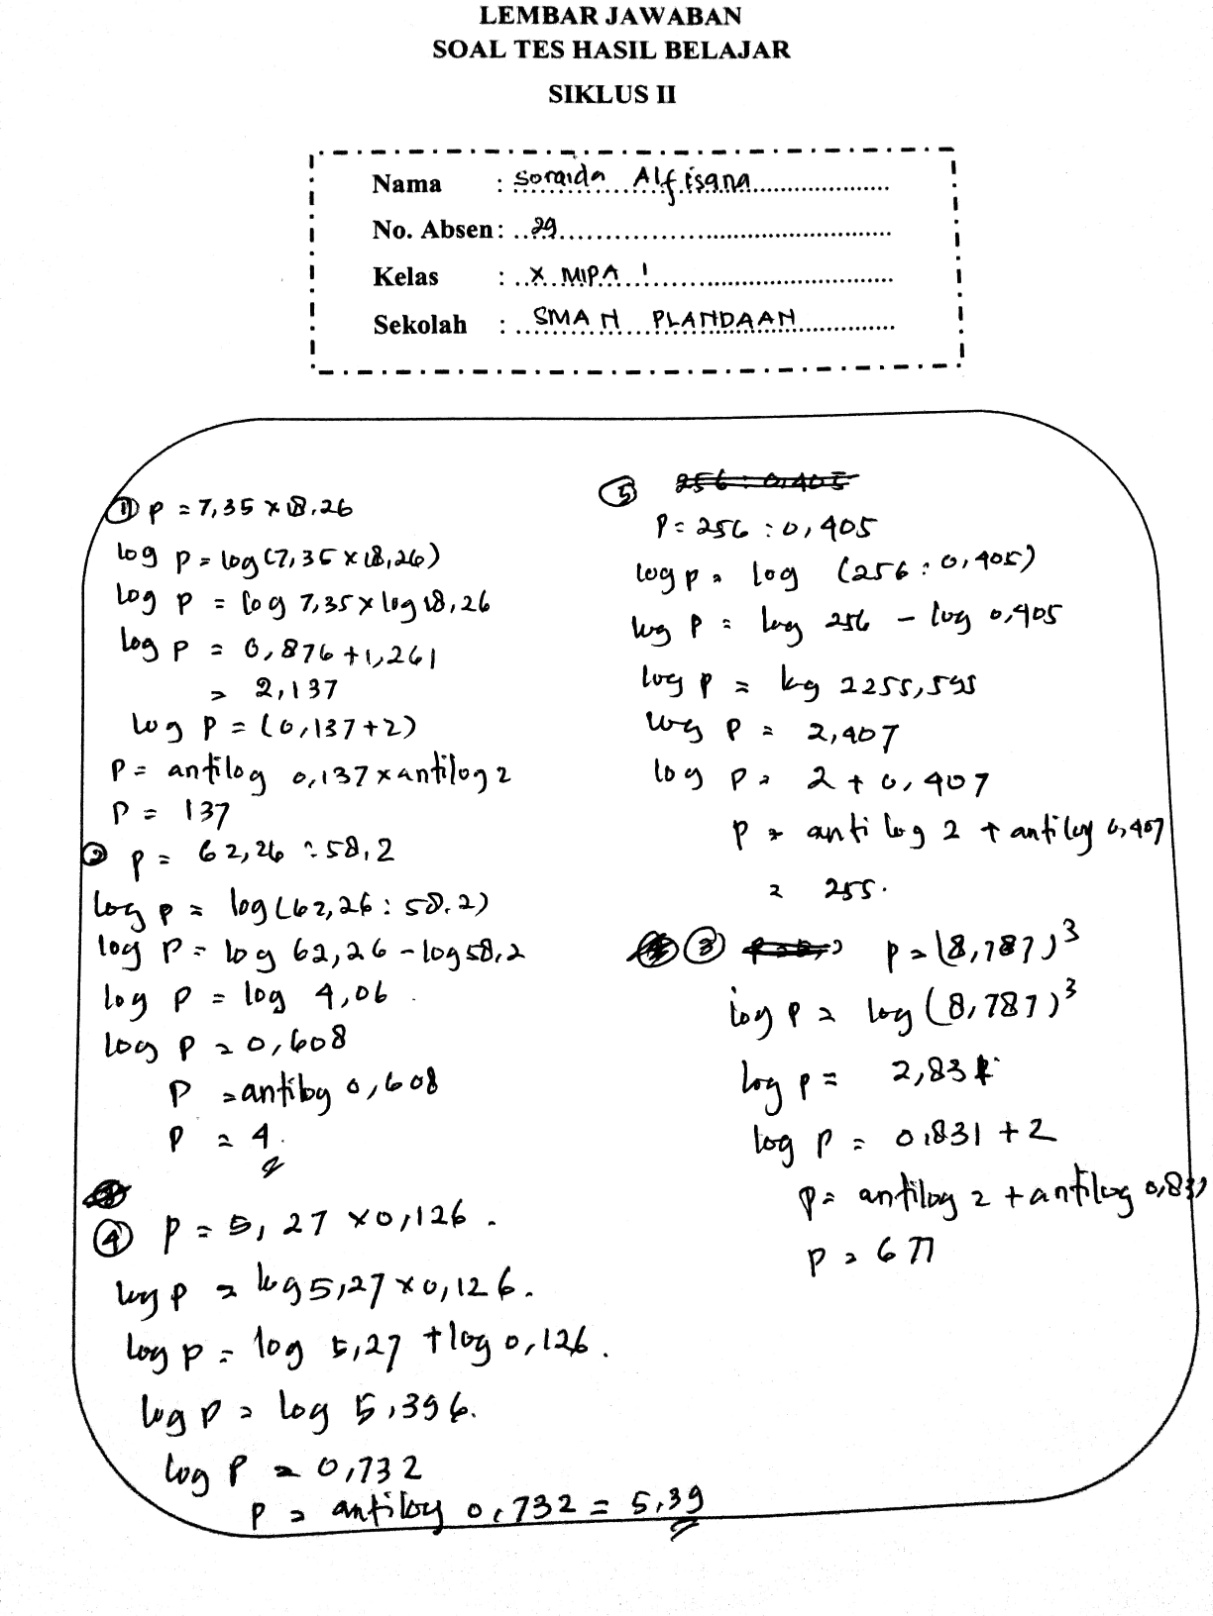 LEMBAR JAWABAN
SOAL TES HASIL BELAJAR
SIKLUS II
Nama : Soraida Alfisana
No. Absen : 29
Kelas : X MIPA 1
Sekolah : SMA N PLANDAAN
① P = 7,35 x 18,26
log P = log (7,35 x 18,26)
log P = log 7,35 x log 18,26
log P = 0,876 + 1,261
= 2,137
log P = (0,137 + 2)
P = antilog 0,137 x antilog 2
P = 137
② P = 62,26 : 58,2
log P = log (62,26 : 58.2)
log P = log 62,26 - log 58,2
log P = log 4,06
log P = 0,608
P = antilog 0,608
P = 4
④ P = 5,27 x 0,126.
log P = log 5,27 x 0,126.
log P = log 5,27 + log 0,126.
log P = log 5,396.
log P = 0,732
P = antilog 0,732 = 5,39
⑤ 256 : 0,405
P = 256 : 0,405
log P = log (256 : 0,405)
log P = log 256 - log 0,405
log P = log 2255,595
log P = 2,407
log P = 2 + 0,407
P = anti log 2 + antilog 0,407
= 255.
③ P = (8,787)³
log P = log (8,787)³
log P = 2,831
log P = 0,831 + 2
P = antilog 2 + antilog 0,831
P = 677